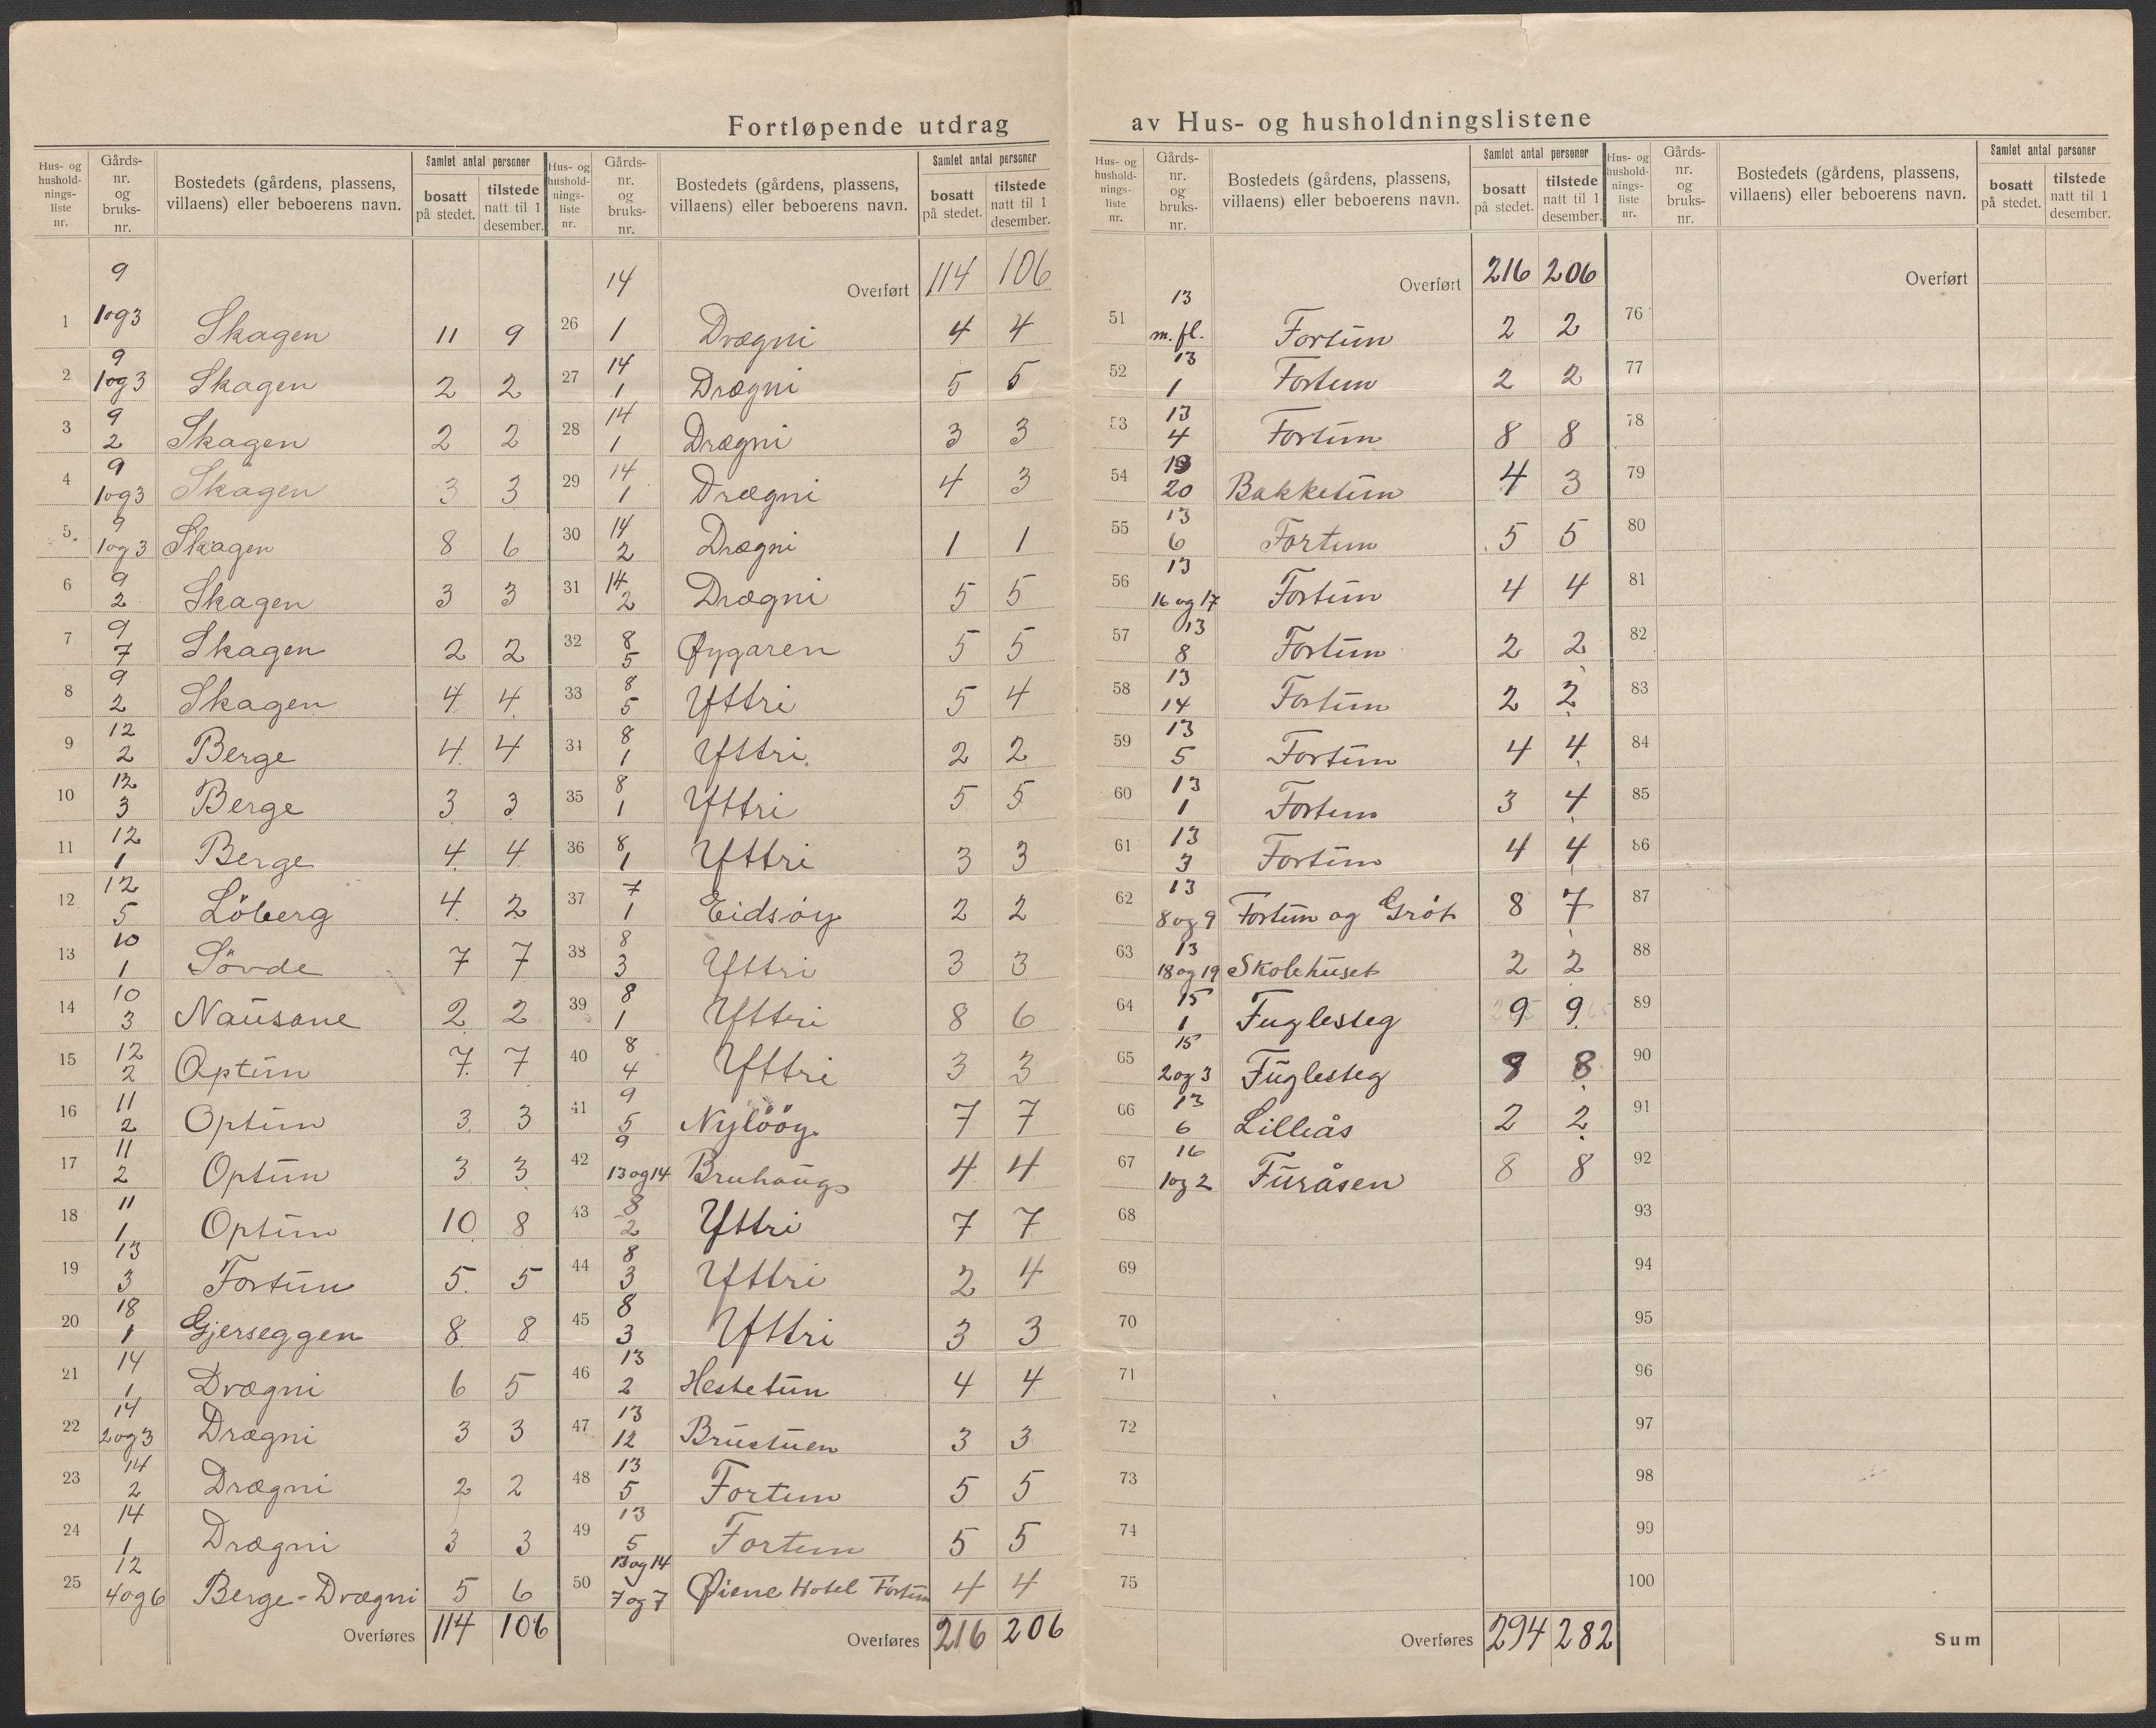 Fortløpende utdrag av Hus- og husholdningslistene
Hus- og hushold- nings- liste nr. | Gårds- nr. og bruks- nr. | Bostedets (gårdens, plassens, villaens) eller beboerens navn. | Samlet antal personer bosatt på stedet. | tilstede natt til 1 desember.
1 | 9 1og3 | Skagen | 11 | 9
2 | 9 1og3 | Skagen | 2 | 2
3 | 9 2 | Skagen | 2 | 2
4 | 9 1og3 | Skagen | 3 | 3
5 | 9 1og3 | Skagen | 8 | 6
6 | 9 2 | Skagen | 3 | 3
7 | 9 7 | Skagen | 2 | 2
8 | 9 2 | Skagen | 4 | 4
9 | 12 2 | Berge | 4 | 4
10 | 12 3 | Berge | 3 | 3
11 | 12 1 | Berge | 4 | 4
12 | 12 5 | Löberg | 4 | 2
13 | 10 1 | Sövde | 7 | 7
14 | 10 3 | Nausane | 2 | 2
15 | 12 2 | Optun | 7 | 7
16 | 11 2 | Optun | 3 | 3
17 | 11 2 | Optun | 3 | 3
18 | 11 1 | Optun | 10 | 8
19 | 13 3 | Fortun | 5 | 5
20 | 18 1 | Gjerseggen | 8 | 8
21 | 14 1 | Drægni | 6 | 5
22 | 14 2og3 | Drægni | 3 | 3
23 | 14 2 | Drægni | 2 | 2
24 | 14 1 | Drægni | 3 | 3
25 | 12 4og6 | Berge-Drægni | 5 | 6
Overføres | 114 | 106
Hus- og hushold- nings- liste nr. | Gårds- nr. og bruks- nr. | Bostedets (gårdens, plassens, villaens) eller beboerens navn. | Samlet antal personer bosatt på stedet. | tilstede natt til 1 desember.
Overført | 114 | 106
26 | 14 1 | Drægni | 4 | 4
27 | 14 1 | Drægni | 5 | 5
28 | 14 1 | Drægni | 3 | 3
29 | 14 1 | Drægni | 4 | 3
30 | 14 2 | Drægni | 1 | 1
31 | 14 2 | Drægni | 5 | 5
32 | 8 5 | Øygaren | 5 | 5
33 | 8 5 | Yttri | 5 | 4
34 | 8 1 | Yttri | 2 | 2
35 | 8 1 | Yttri | 5 | 5
36 | 8 1 | Yttri | 3 | 3
37 | 7 1 | Eidsøy | 2 | 2
38 | 8 3 | Yttri | 3 | 3
39 | 8 1 | Yttri | 8 | 6
40 | 8 4 | Yttri | 3 | 3
41 | 9 5 | Nylöög | 7 | 7
42 | 9 13og14 | Bruhaugs | 4 | 4
43 | 8 2 | Yttri | 7 | 7
44 | 8 3 | Yttri | 2 | 4
45 | 8 3 | Yttri | 3 | 3
46 | 13 2 | Hestetun | 4 | 4
47 | 13 12 | Brustuen | 3 | 3
48 | 13 5 | Fortun | 5 | 5
49 | 13 5 | Fortun | 5 | 5
50 | 13og14 7og7 | Øiene Hotel Fortun | 4 | 4
Overføres | 216 | 206
Hus- og hushold- nings- liste nr. | Gårds- nr. og bruks- nr. | Bostedets (gårdens, plassens, villaens) eller beboerens navn. | Samlet antal personer bosatt på stedet. | tilstede natt til 1 desember.
Overført | 216 | 206
51 | 13 m.fl. | Fortun | 2 | 2
52 | 13 1 | Fortun | 2 | 2
53 | 13 4 | Fortun | 8 | 8
54 | 13 20 | Bakketun | 4 | 3
55 | 13 6 | Fortun | 5 | 5
56 | 13 16 og 17 | Fortun | 4 | 4
57 | 13 8 | Fortun | 2 | 2
58 | 13 14 | Fortun | 2 | 2
59 | 13 5 | Fortun | 4 | 4
60 | 13 1 | Fortun | 3 | 4
61 | 13 3 | Fortun | 4 | 4
62 | 13 8og9 | Fortun og Grøt | 8 | 7
63 | 13 18og19 | Skolehuset | 2 | 2
64 | 15 1 | Fuglesteg | 9 | 9
65 | 15 2og3 | Fuglesteg | 9 | 8
66 | 13 6 | Lilleås | 2 | 2
67 | 16 1og2 | Furåsen | 8 | 8
68
69
70
71
72
73
74
75
Overføres | 294 | 282
Hus- og hushold- nings- liste nr. | Gårds- nr. og bruks- nr. | Bostedets (gårdens, plassens, villaens) eller beboerens navn. | Samlet antal personer bosatt på stedet. | tilstede natt til 1 desember.
Overført
76
77
78
79
80
81
82
83
84
85
86
87
88
89
90
91
92
93
94
95
96
97
98
99
100
Sum